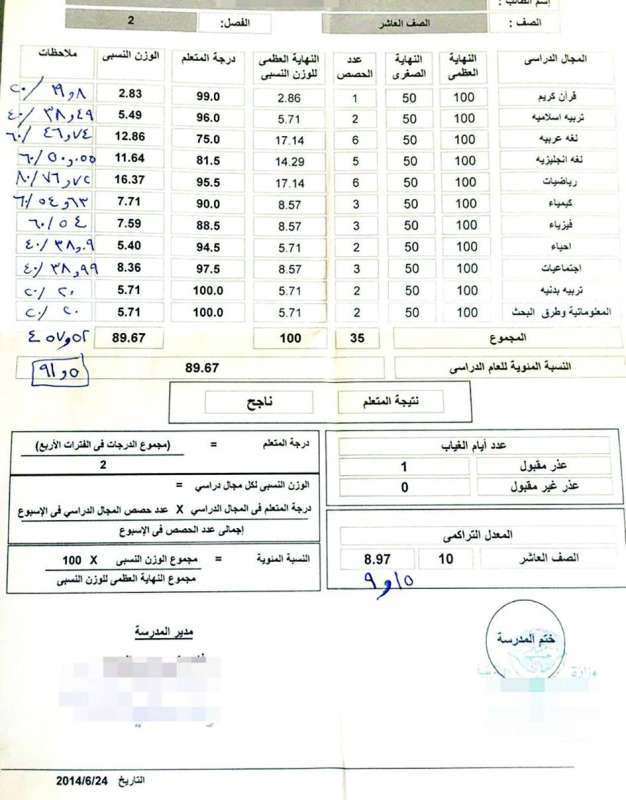 إسم الطالب :
الصف : الصف العاشر الفصل: 2
المجال الدراسى النهاية العظمى النهاية الصغرى عدد الحصص النهاية العظمى للوزن النسبى درجة المتعلم الوزن النسبى ملاحظات
قرآن كريم 100 50 1 2.86 99.0 2.83 ١٩و٨ /٢٠
تربيه اسلاميه 100 50 2 5.71 96.0 5.49 ٣٨و٤٩ /٤٠
لغه عربيه 100 50 6 17.14 75.0 12.86 ٤٦و٧٤ /٦٠
لغه انجليزيه 100 50 5 14.29 81.5 11.64 ٥٠و٥٥ /٦٠
رياضيات 100 50 6 17.14 95.5 16.37 ٧٦و٧٢ /٨٠
كيمياء 100 50 3 8.57 90.0 7.71 ٥٤و٦٣ /٦٠
فيزياء 100 50 3 8.57 88.5 7.59 ٥٤ /٦٠
احياء 100 50 2 5.71 94.5 5.40 ٣٨و٠٩ /٤٠
اجتماعيات 100 50 3 8.57 97.5 8.36 ٣٨و٩٩ /٤٠
تربيه بدنيه 100 50 2 5.71 100.0 5.71 ٢٠ /٢٠
المعلوماتية وطرق البحث 100 50 2 5.71 100.0 5.71 ٢٠ /٢٠
المجموع 35 100 89.67 ٤٥٧و٥٢
النسبة المئوية للعام الدراسى 89.67 ٩١و٥
نتيجة المتعلم ناجح
عدد أيام الغياب
عذر مقبول 1
عذر غير مقبول 0
المعدل التراكمى
الصف العاشر 10 8.97
٩و١٥
درجة المتعلم = (مجموع الدرجات فى الفترات الأربع)
2
الوزن النسبى لكل مجال دراسي =
درجة المتعلم فى المجال الدراسي X عدد حصص المجال الدراسي فى الإسبوع
إجمالى عدد الحصص فى الإسبوع
النسبة المئوية = مجموع الوزن النسبى X 100
مجموع النهاية العظمى للوزن النسبى
ختم المدرسة
مدير المدرسة
التاريخ 2014/6/24